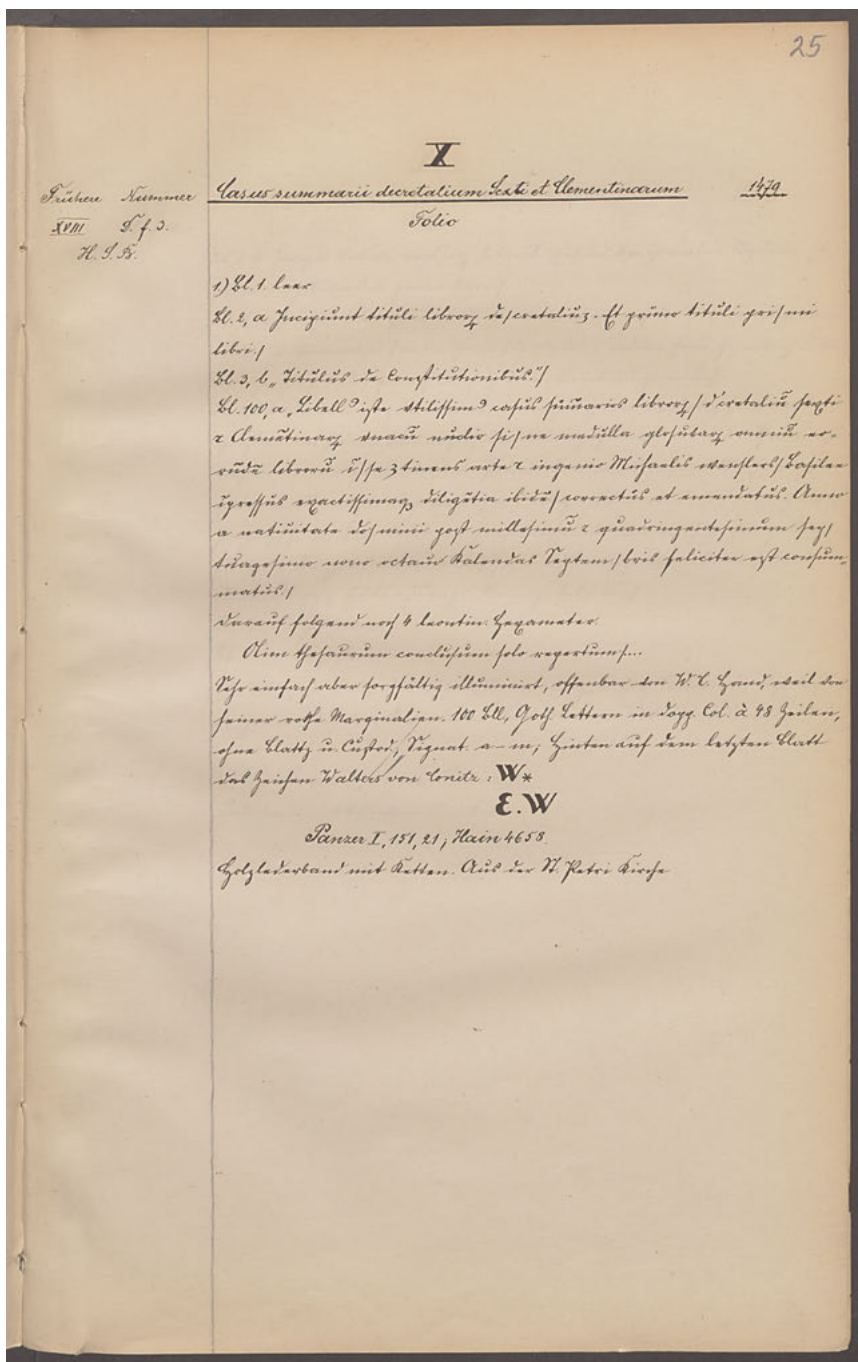 25
X
Frühere Nummer
XVIII D. f. 3.
H. S. K.
Casus summarii decretalium Sexti et Clementinarum 1479
Folio
1) Bl. 1. leer
Bl. 2, a Incipiunt tituli libroꝝ de/cretaliuʒ. Et primo tituli pri/mi
libri./
Bl. 3, b „Titulus de Constitutionibus."/
Bl. 100, a „Libellꝰ iste vtilissimꝰ casus sūmarios libroꝝ/ d'cretaliū sexti
⁊ Clemētinaꝝ vnacū nucleo si/ue medulla glosularꝝ omniū eo-
rūdē libroru ī/se ʒtinens arte ⁊ ingenio Michaelis wensslers/ Basilee
īpressus exactissimaqꝫ diligētia ibidē/ correctus et emendatus. Anno
a natiuitate do/mini post millesimū ⁊ quadringentesimum sep/
tuagesimo nono octauo Kalendas Septem/bris feliciter est consum-
matus./
Darauf folgend noch 4 leonin. Hexameter.
Olim thesaurum conclusum solo repertum/...
Sehr einfach aber sorgfältig illuminirt, offenbar von W. C. Hand, weil von
seiner rothe Marginalien. 100 Bll., Goth. Lettern in dopp. Col. à 48 Zeilen,
ohne Blattz. u. Custod., Signat. a–m; Hinten auf dem letzten Blatt
das Zeichen Walters von Conitz: W*
E.W
Panzer I, 151, 21; Hain 4658.
Holzlederband mit Ketten. Aus der St. Petri Kirche